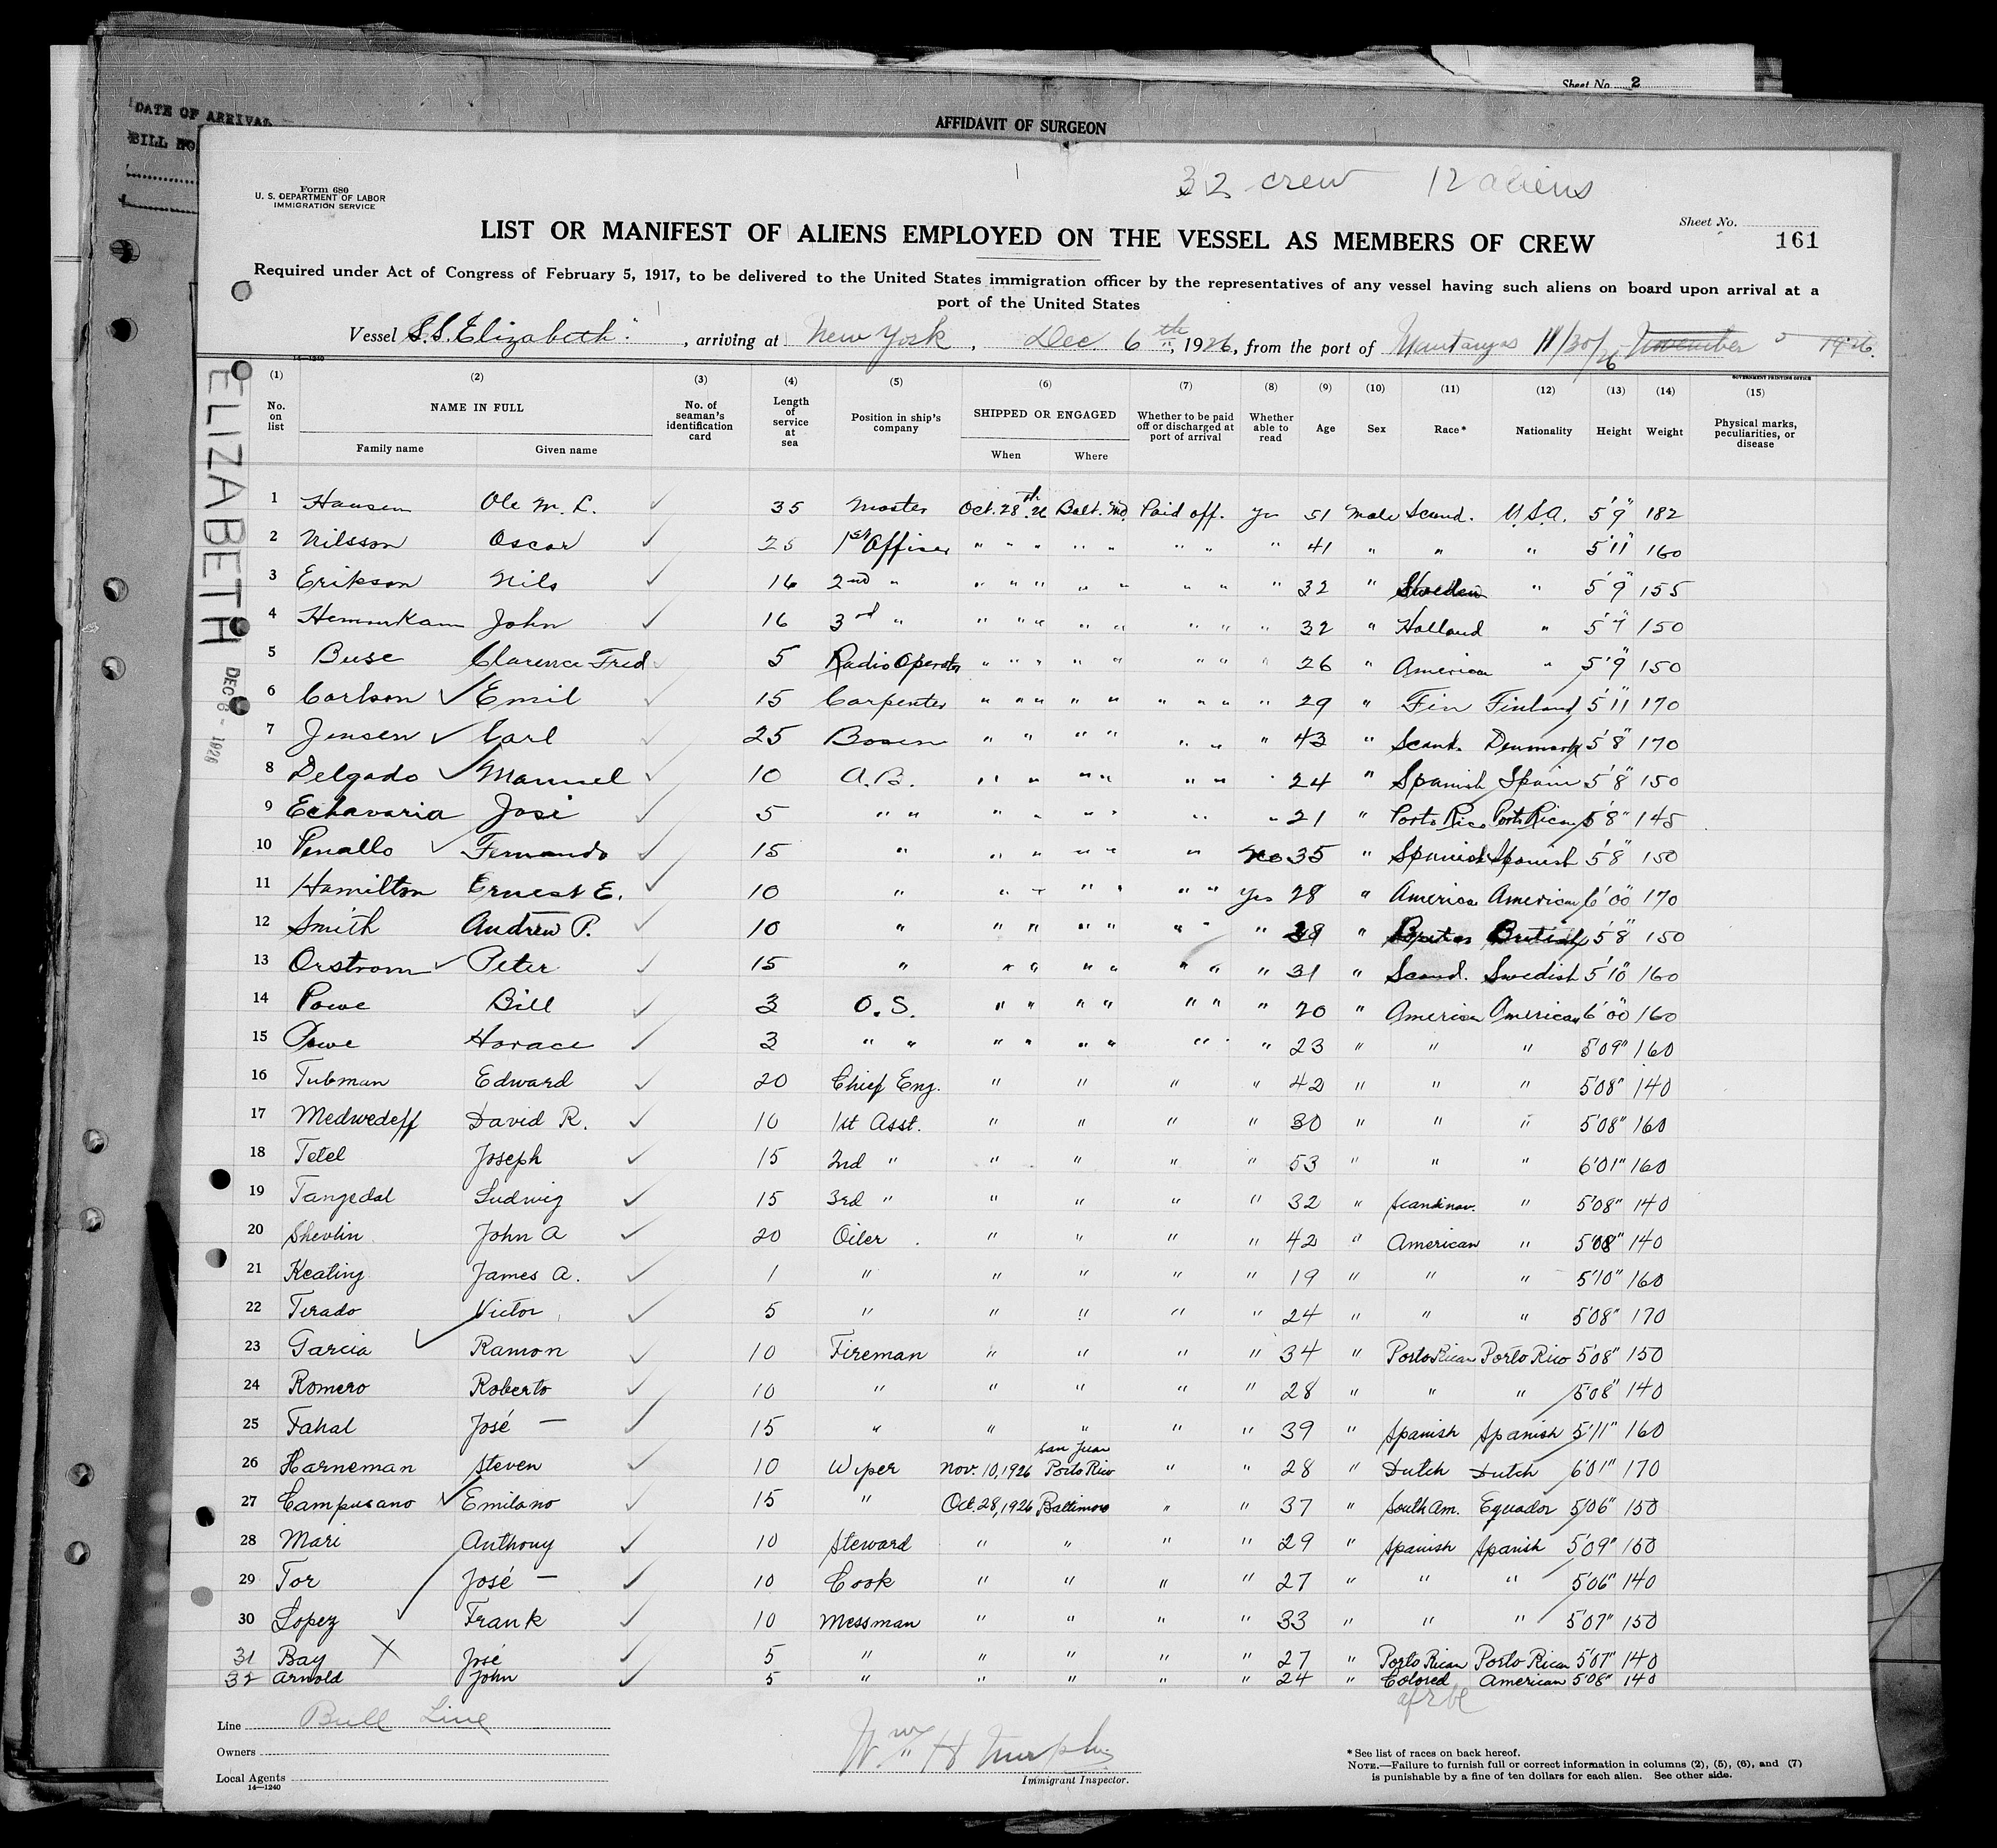 Sheet No. 2
DATE OF ARRIVAL
BILL NO
AFFIDAVIT OF SURGEON
32 crew 12 aliens
Form 680
U. S. DEPARTMENT OF LABOR
IMMIGRATION SERVICE
Sheet No.
161
LIST OR MANIFEST OF ALIENS EMPLOYED ON THE VESSEL AS MEMBERS OF CREW
Required under Act of Congress of February 5, 1917, to be delivered to the United States immigration officer by the representatives of any vessel having such aliens on board upon arrival at a
port of the United States
Vessel S.S. Elizabeth, arriving at New York, Dec 6th, 1926, from the port of 11/30/26 November 1926.
14—1240
GOVERNMENT PRINTING OFFICE
ELIZABETH DEC 6 - 1926
(1) (2) (3) (4) (5) (6) (7) (8) (9) (10) (11) (12) (13) (14) (15)
No. on list NAME IN FULL No. of seaman's identification card Length of service at sea Position in ship's company SHIPPED OR ENGAGED Whether to be paid off or discharged at port of arrival Whether able to read Age Sex Race* Nationality Height Weight Physical marks, peculiarities, or disease
Family name Given name When Where
1 Hansen Ole M. L. 35 Master Oct. 28th 26 Balt. Md. Paid off. Yes 51 Male Scand. U.S.A. 5'9" 182
2 Nilsson Oscar 25 1st Officer " " " " " " " " 41 " " " 5'11" 160
3 Erikson Nils 16 2nd " " " " " " " " " 32 " Sweden " 5'9" 155
4 John 16 3rd " " " " " " " " " 32 " Holland " 5'7" 150
5 Buse Clarence Fred 5 Radio Operator " " " " " " " " 26 " American " 5'9" 150
6 Carlson Emil 15 Carpenter " " " " " " " " " 29 " Fin Finland 5'11" 170
7 Jensen Carl 25 Bosen " " " " " " " 43 " Scand. Denmark 5'8" 170
8 Delgado Manuel 10 A.B. " " " " " " " 24 " Spanish Spain 5'8" 150
9 Echavaria Josi 5 " " " " " " " " " 21 " Porto Rico Porto Rican 5'8" 145
10 Penallo Fernando 15 " " " " " " No 35 " Spanish Spanish 5'8" 150
11 Hamilton Ernest E. 10 " " " " " " " Yes 28 " America American 6'00" 170
12 Smith Andrew P. 10 " " " " " " " " " British 5'8" 150
13 Orstrom Peter 15 " " " " " " " " 31 " Scand. Swedish 5'10" 160
14 Powe Bill 3 O.S. " " " " " " " 20 " American American 6'00" 160
15 Powe Horace 3 " " " " " " " " " 23 " " " 5'09" 160
16 Tubman Edward 20 Chief Eng. " " " " 42 " " " 5'08" 140
17 Medwedeff David R. 10 1st Asst. " " " " 30 " " " 5'08" 160
18 Tetel Joseph 15 2nd " " " " " 53 " " " 6'01" 160
19 Tangedal Ludwig 15 3rd " " " " " 32 " Scandinav. " 5'08" 140
20 Shevlin John A 20 Oiler " " " " 42 " American " 5'08" 140
21 Keating James A. 1 " " " " " 19 " " " 5'10" 160
22 Tirado Victor 5 " " " " " 24 " " " 5'08" 170
23 Garcia Ramon 10 Fireman " " " " 34 " Porto Rican Porto Rico 5'08" 150
24 Romero Roberto 10 " " " " " 28 " " " 5'08" 140
25 Fahal José — 15 " " " " " 39 " Spanish Spanish 5'11" 160
26 Harneman Steven 10 Wiper Nov. 10, 1926 San Juan Porto Rico " " 28 " Dutch Dutch 6'01" 170
27 Campusano Emilano 15 " Oct. 28, 1926 Baltimore " " 37 " South Am. Equador 5'06" 150
28 Mari Anthony 10 Steward " " " " 29 " Spanish Spanish 5'09" 150
29 Tor José — 10 Cook " " " " 27 " " " 5'06" 140
30 Lopez Frank 10 Messman " " " " 33 " " " 5'07" 150
31 Bay X José 5 " " " " " 27 " Porto Rican Porto Rican 5'07" 140
32 Arnold John 5 " " " " " 24 " Colored American 5'08" 140
Line Bull Line
Owners
Local Agents
14—1240
Wm H Murphy
Immigrant Inspector.
*See list of races on back hereof.
NOTE.—Failure to furnish full or correct information in columns (2), (5), (6), and (7)
is punishable by a fine of ten dollars for each alien. See other side.